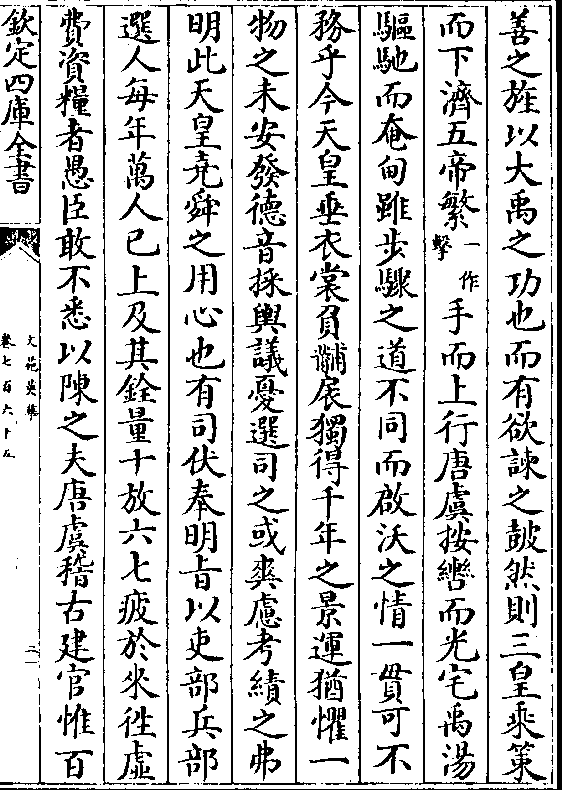 善之旌以大禹之功也而有欲諫之皷然則三皇乘策
而下濟五帝繁一作擊手而上行唐虞按轡而光宅禹湯
驅馳而奄甸雖步驟之道不同而啟沃之情一貫可不
務乎今天皇垂衣裳負黼扆獨得千年之景運猶懼一
物之未安發德音採輿議憂選司之或爽慮考績之弗
明此天皇堯舜之用心也有司伏奉明旨以吏部兵部
選人每年萬人已上及其銓量十放六七疲於來徃虛
費資糧者愚臣敢不悉以陳之夫唐虞稽古建官惟百
欽定四庫全書
文苑英華
卷七百六十五
二